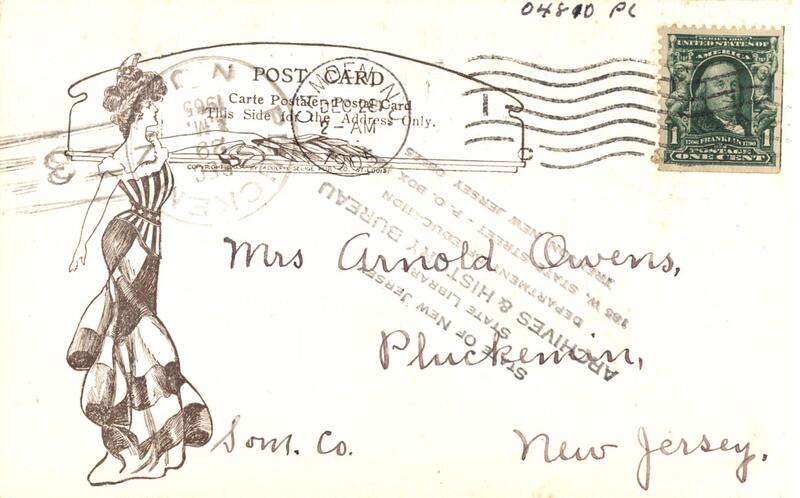 04810 PC
SERIES 1902
UNITED STATES OF
AMERICA
1 FRANKLIN 1790
POSTAGE
ONE CENT
POST CARD
Carte Postale Postal Card
This Side for the Address Only.
CAMDEN, N.J.
2-AM
1905
1
3
C
1905
Mrs Arnold Owens,
Pluckemin,
Som. Co. New Jersey.
STATE OF NEW JERSEY
STATE LIBRARY
DEPARTMENT OF EDUCATION
ARCHIVES & HISTORY BUREAU
185 W. STATE STREET - P. O. BOX
TRENTON, NEW JERSEY 08625